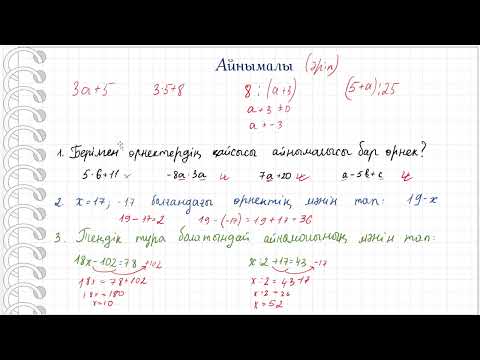 Айнымалы (әріп)
3a+5 3·5+8 8:(a+3) (5+a):25
a+3 ≠0
a≠-3
1. Берілген өрнектердің қайсысы айнымалысы бар өрнек?
5·6+11 × -8a·3a 7a+20 a-5b+c
2. x=17; -17 болғандағы өрнектің мәнін тап: 19-x
19-17=2 19-(-17)=19+17=36
3. Теңдік тура болатындай айнымалының мәнін тап:
18x-102=78 +102 x:2+17=43 -17
18x=78+102 x:2=43-17
18x=180 x:2=26
x=10 x=52